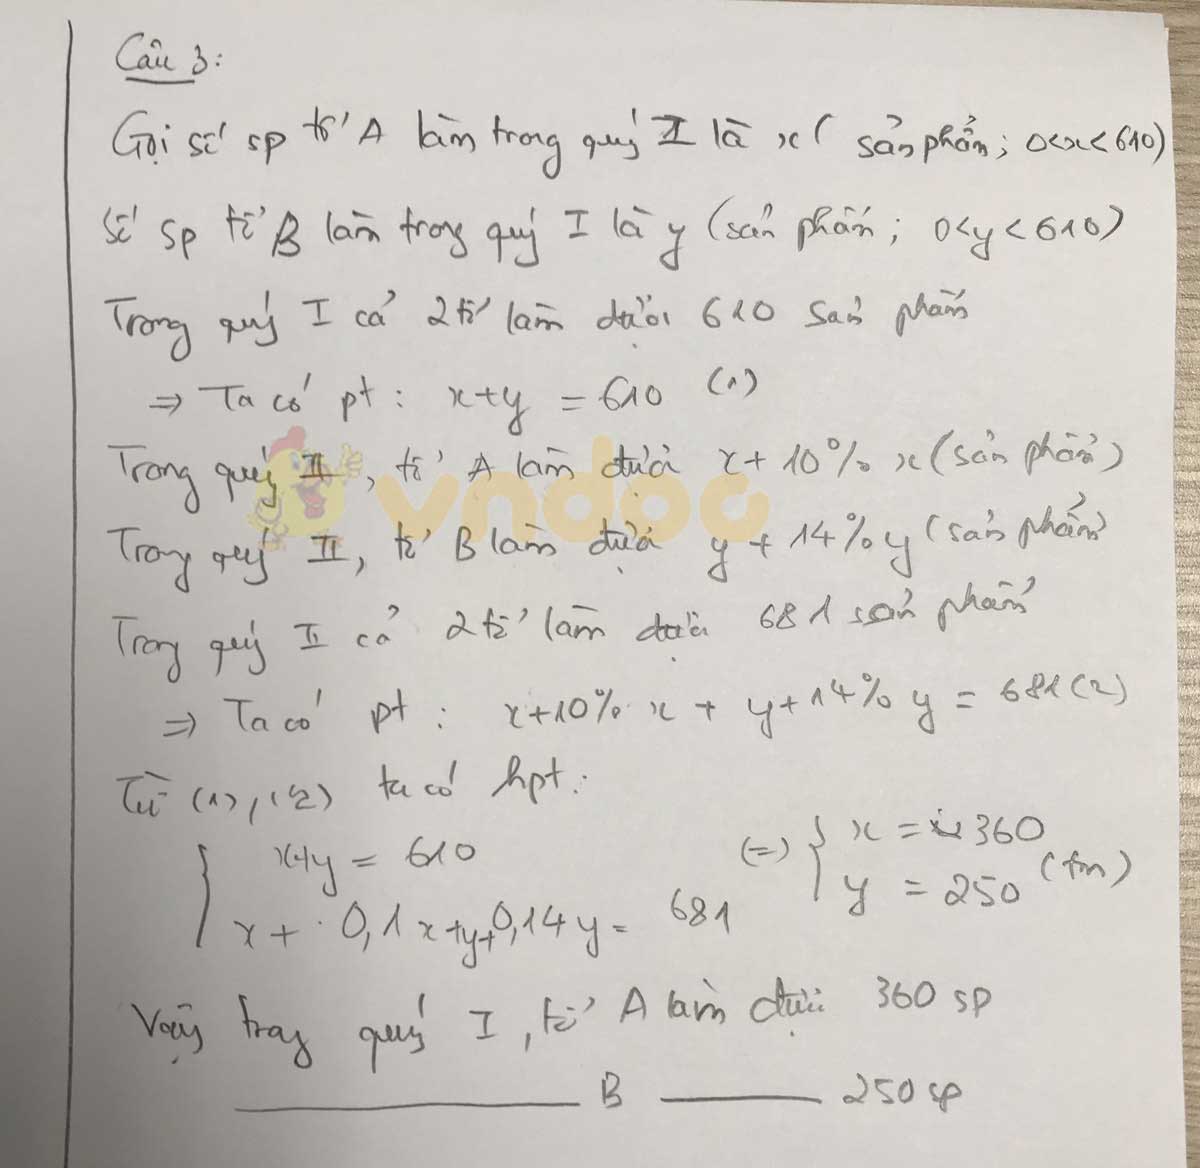 Câu 3:
Gọi số sp tổ A làm trong quý I là x ( sản phẩm; 0<x<610)
Số sp tổ B làm trong quý I là y (sản phẩm; 0<y<610)
Trong quý I cả 2 tổ làm được 610 sản phẩm
=> Ta có pt: x+y = 610 (1)
Trong quý II, tổ A làm được x+10% x (sản phẩm)
vndoc
Trong quý II, tổ B làm được y + 14% y (sản phẩm)
Trong quý II cả 2 tổ làm được 681 sản phẩm
=> Ta có pt: x+10% x + y+14% y = 681 (2)
Từ (1), (2) ta có hpt:
{ x+y = 610
x + 0,1x+y+0,14y = 681
(=) { x = 360
y = 250 (tm)
Vậy trong quý I, tổ A làm được 360 sp
B 250 sp